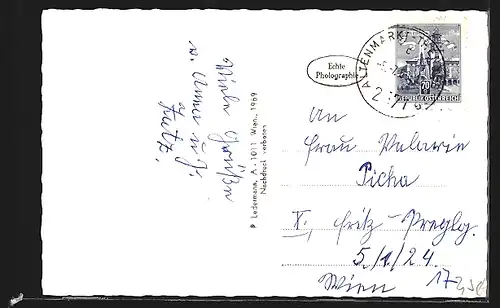 Viele Grüße
v. Anna u. J.
Fritz.
℗ Ledermann, A-1011 Wien, 1969
Nachdruck verboten
Echte
Photographie
ALTENMARKT
2571
70
REPUBLIK ÖSTERREICH
An
Frau Valwin
Picha
X. Fritz-Preglg.
5./1./24.
Wien